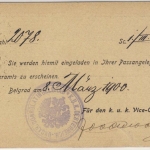 2078.
Sie werden hiemit eingeladen in Ihrer Passangele
eramts zu erscheinen.
Belgrad am 8. März 1900.
Für den k. u. k. Vice-C